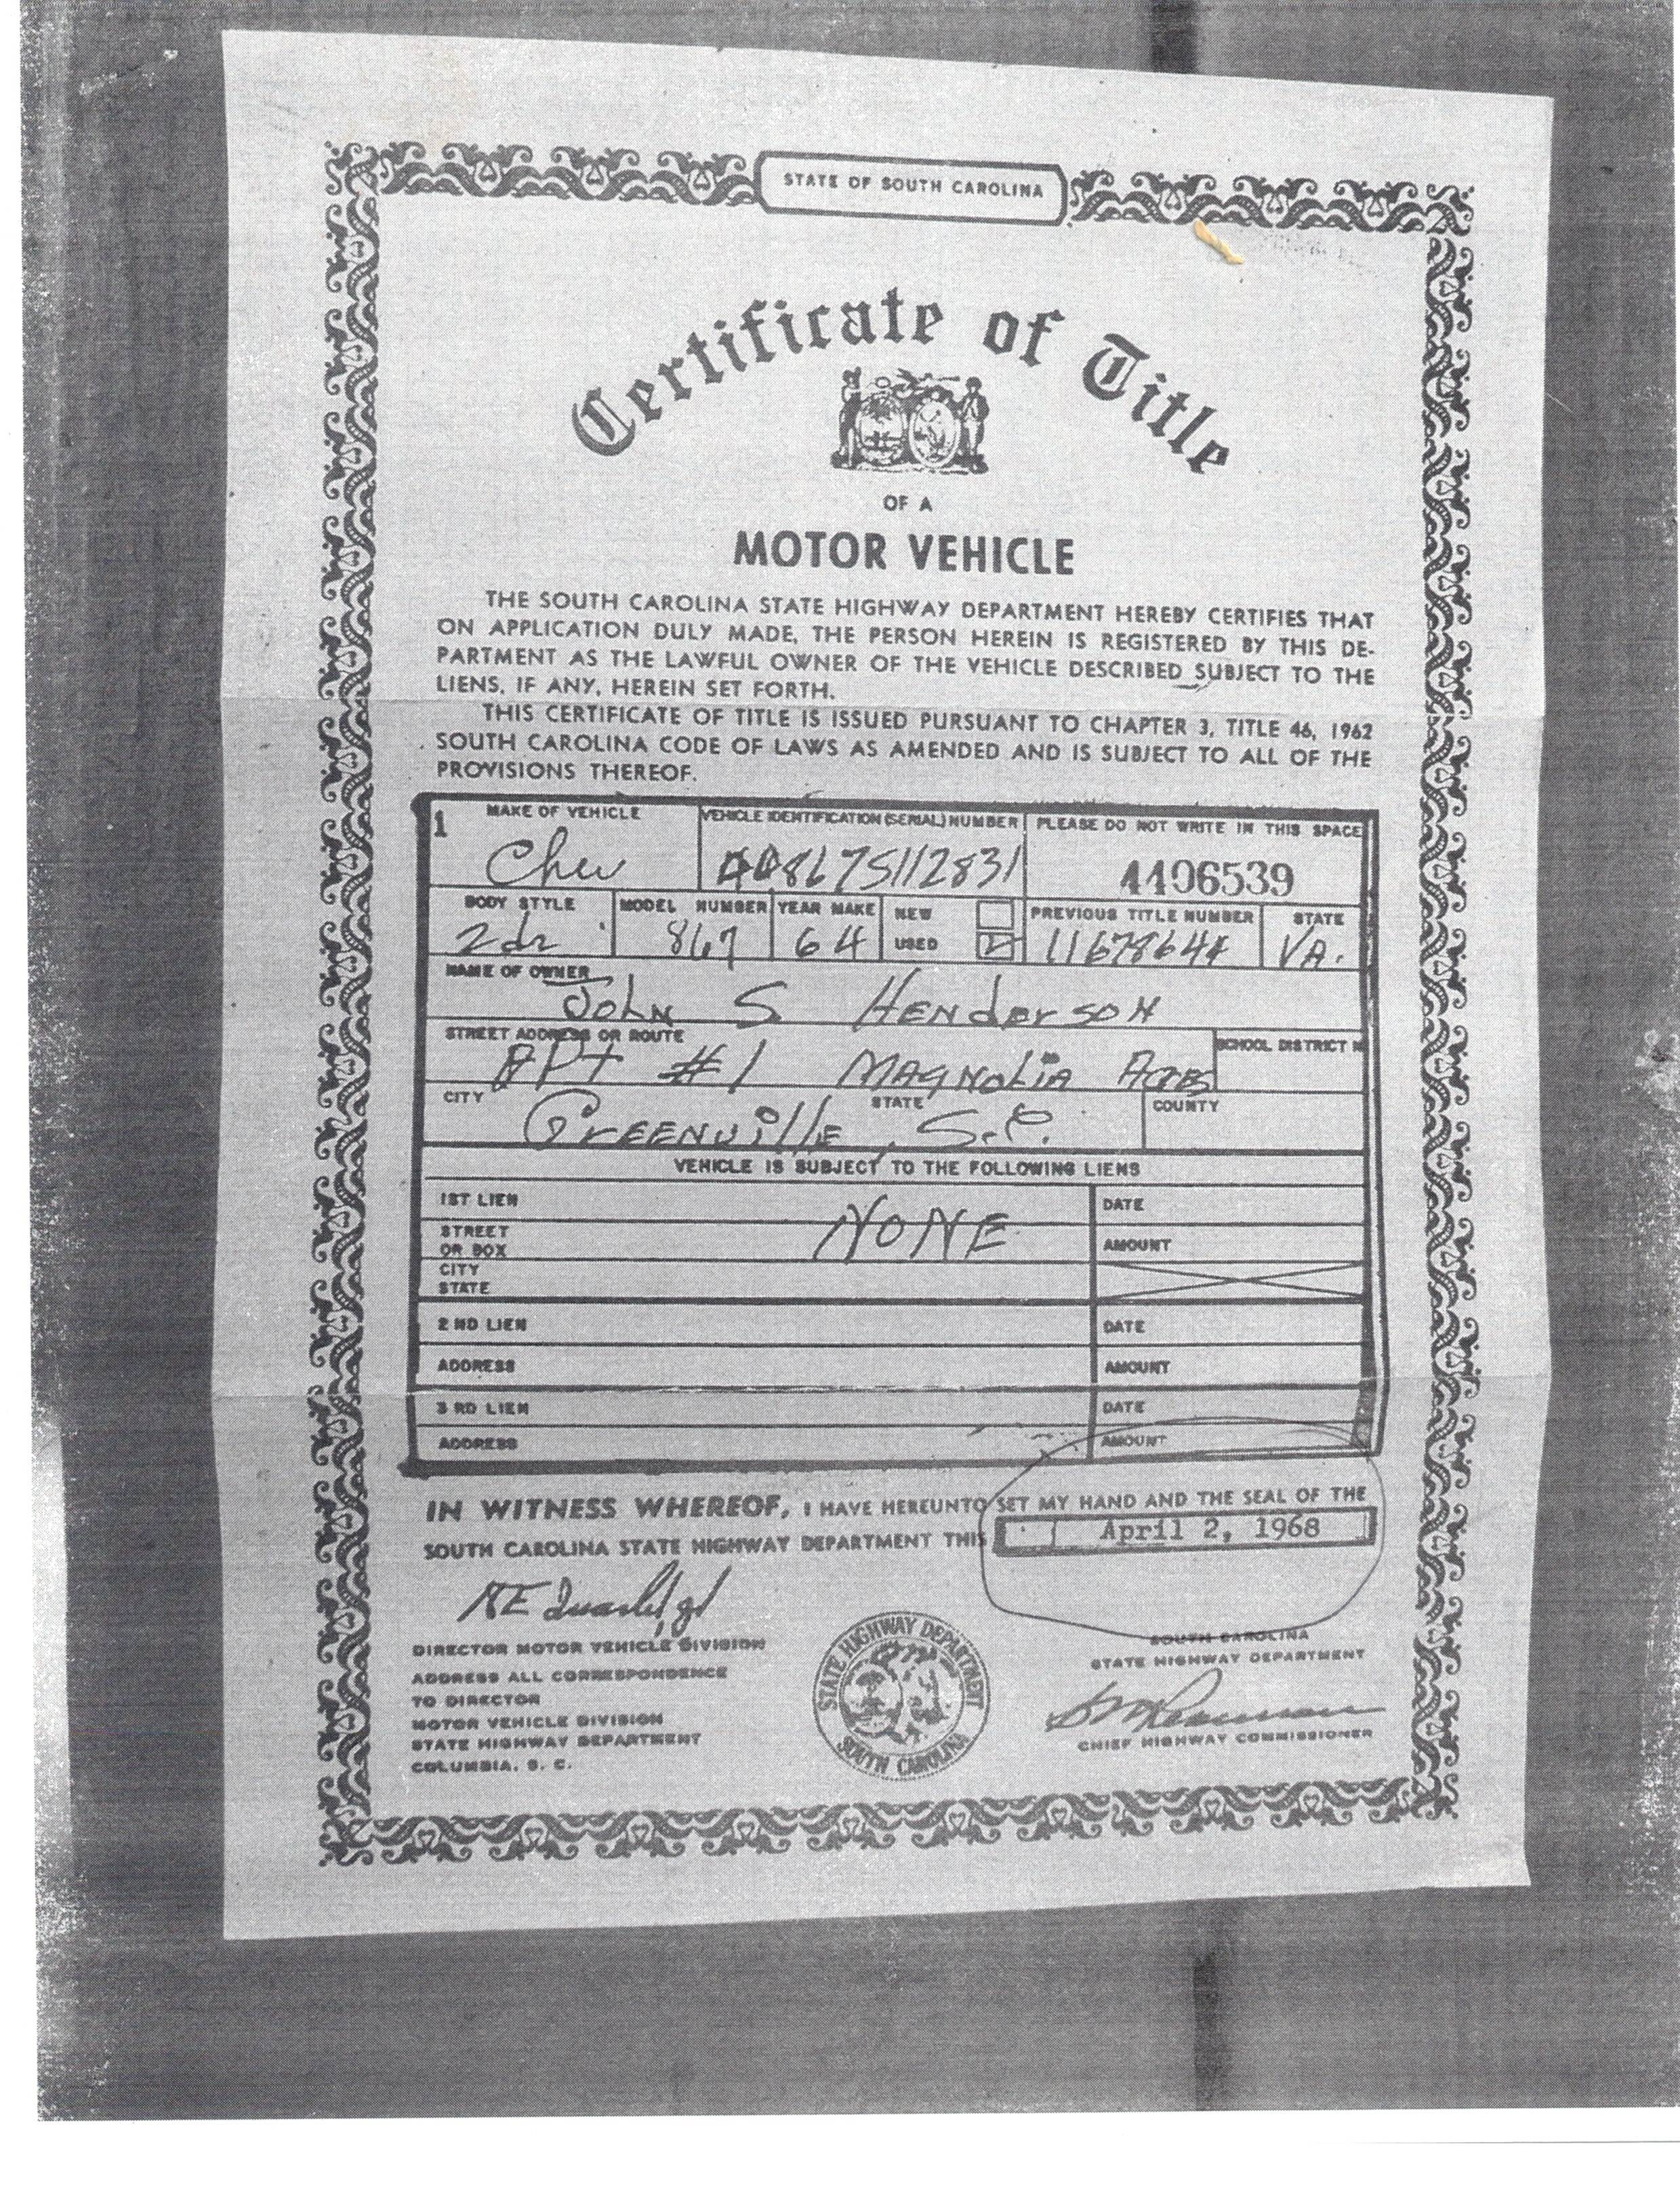 STATE OF SOUTH CAROLINA
Certificate of Title
OF A
MOTOR VEHICLE
THE SOUTH CAROLINA STATE HIGHWAY DEPARTMENT HEREBY CERTIFIES THAT
ON APPLICATION DULY MADE, THE PERSON HEREIN IS REGISTERED BY THIS DE-
PARTMENT AS THE LAWFUL OWNER OF THE VEHICLE DESCRIBED SUBJECT TO THE
LIENS, IF ANY, HEREIN SET FORTH.
THIS CERTIFICATE OF TITLE IS ISSUED PURSUANT TO CHAPTER 3, TITLE 46, 1962
SOUTH CAROLINA CODE OF LAWS AS AMENDED AND IS SUBJECT TO ALL OF THE
PROVISIONS THEREOF.
1 MAKE OF VEHICLE VEHICLE IDENTIFICATION (SERIAL) NUMBER PLEASE DO NOT WRITE IN THIS SPACE
Chev 40867S112831 4406539
BODY STYLE MODEL NUMBER YEAR MAKE NEW PREVIOUS TITLE NUMBER STATE
2dr 867 64 USED VA.
NAME OF OWNER
John S. Henderson
STREET ADDRESS OR ROUTE SCHOOL DISTRICT N
APt #1 MAGNOLiA Acres
CITY STATE COUNTY
GrEENvillE, S.C.
VEHICLE IS SUBJECT TO THE FOLLOWING LIENS
1ST LIEN NONE DATE
STREET
OR BOX AMOUNT
CITY
STATE
2 ND LIEN DATE
ADDRESS AMOUNT
3 RD LIEN DATE
ADDRESS AMOUNT
IN WITNESS WHEREOF, I HAVE HEREUNTO SET MY HAND AND THE SEAL OF THE
SOUTH CAROLINA STATE HIGHWAY DEPARTMENT THIS April 2, 1968
DIRECTOR MOTOR VEHICLE DIVISION
ADDRESS ALL CORRESPONDENCE
TO DIRECTOR
MOTOR VEHICLE DIVISION
STATE HIGHWAY DEPARTMENT
COLUMBIA, S. C.
STATE HIGHWAY DEPARTMENT
SOUTH CAROLINA
SOUTH CAROLINA
STATE HIGHWAY DEPARTMENT
CHIEF HIGHWAY COMMISSIONER